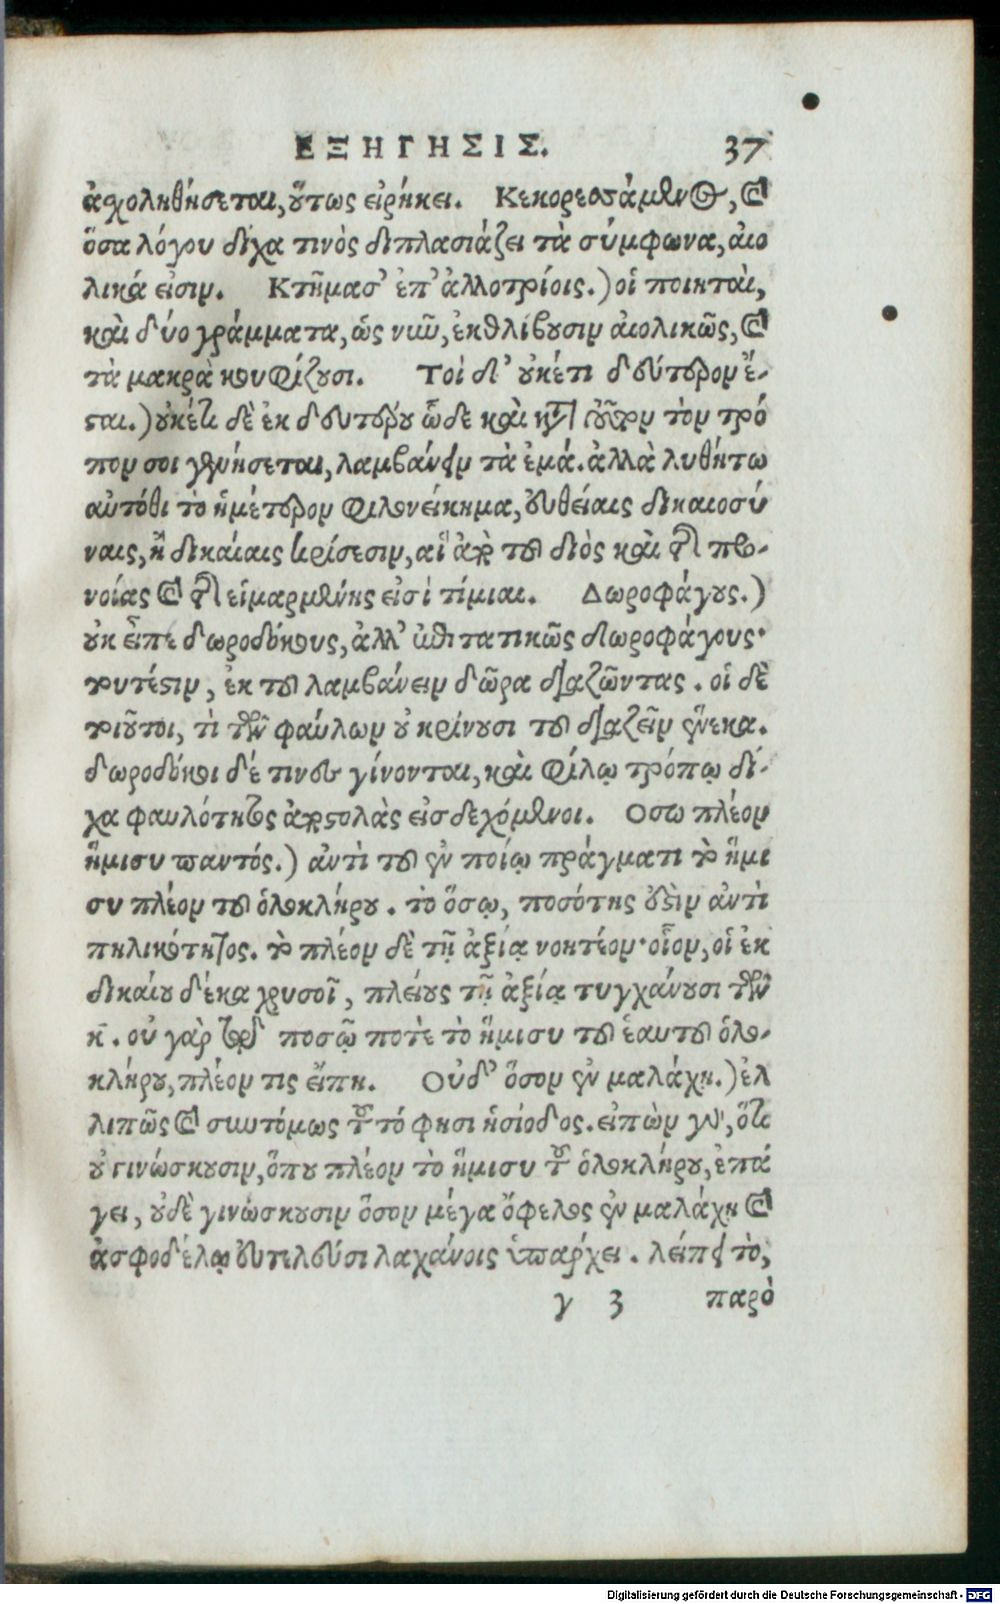 ΕΞΗΓΗΣΙΣ. 37
ἀχοληθήσεται, οὕτως εἰρήκει. Κεκορεσσάμενος, καὶ
ὅσα λόγου δίχα τινὸς διπλασιάζει τὰ σύμφωνα, αἰο
λικά εἰσιν. Κτήμασ' ἐπ' ἀλλοτρίοις.) οἱ ποιηταὶ,
καὶ δύο γράμματα, ὡς νῦν, ἐκθλίβουσιν αἰολικῶς, καὶ
τὰ μακρὰ κουφίζουσι. Τοὶ δ' οὐκέτι δεύτερον ἔ-
σται.) οὐκέτι δὲ ἐκ δευτέρου ὧδε καὶ κατὰ τοῦτον τὸν τρό
πον σοι γενήσεται, λαμβάνειν τὰ ἐμά. ἀλλὰ λυθήτω
αὐτόθι τὸ ἡμέτερον φιλονείκημα, εὐθείαις δικαιοσύ
ναις, ἢ δικαίαις κρίσεσιν, αἳ ἀπὸ τοῦ διὸς καὶ τῆς προ-
νοίας καὶ τῆς εἱμαρμένης εἰσὶ τίμιαι. Δωροφάγους.)
οὐκ εἶπε δωροδόκους, ἀλλ' ἐπιτατικῶς δωροφάγους·
τουτέστιν, ἐκ τοῦ λαμβάνειν δῶρα διαζῶντας. οἱ δὲ
τοιοῦτοι, τὶ τῶν φαύλων οὐ κρίνουσι τοῦ διαζεῖν ἕνεκα.
δωροδόκοι δέ τινες γίνονται, καὶ φίλῳ τρόπῳ δί-
χα φαυλότητος ἀποστολὰς εἰσδεχόμενοι. Οσω πλέον
ἥμισυ παντός.) ἀντὶ τοῦ ἐν ποίῳ πράγματι τὸ ἥμι
συ πλέον τοῦ ὁλοκλήρου. τὸ ὅσῳ, ποσότης ἐστὶν ἀντὶ
πηλικότητος. τὸ πλέον δὲ τῇ ἀξίᾳ νοητέον· οἷον, οἱ ἐκ
δικαίου δέκα χρυσοῖ, πλείους τῇ ἀξίᾳ τυγχάνουσι τῶν
κ̄. οὐ γὰρ ἐν ποσῷ ποτὲ τὸ ἥμισυ τοῦ ἑαυτοῦ ὁλο-
κλήρου, πλέον τις εἴπῃ. Οὐδ' ὅσον ἐν μαλάχῃ.) ἐλ
λιπῶς καὶ συντόμως τοῦτό φησι ἡσίοδος. εἰπὼν γὰρ, ὅτι
οὐ γινώσκουσιν, ὅπου πλέον τὸ ἥμισυ τοῦ ὁλοκλήρου, ἐπά
γει, οὐδὲ γινώσκουσιν ὅσον μέγα ὄφελος ἐν μαλάχῃ καὶ
ἀσφοδέλῳ εὐτελεῦσι λαχάνοις ὑπάρχει. λείπει τὸ,
γ 3 παρὸ
Digitalisierung gefördert durch die Deutsche Forschungsgemeinschaft - DFG